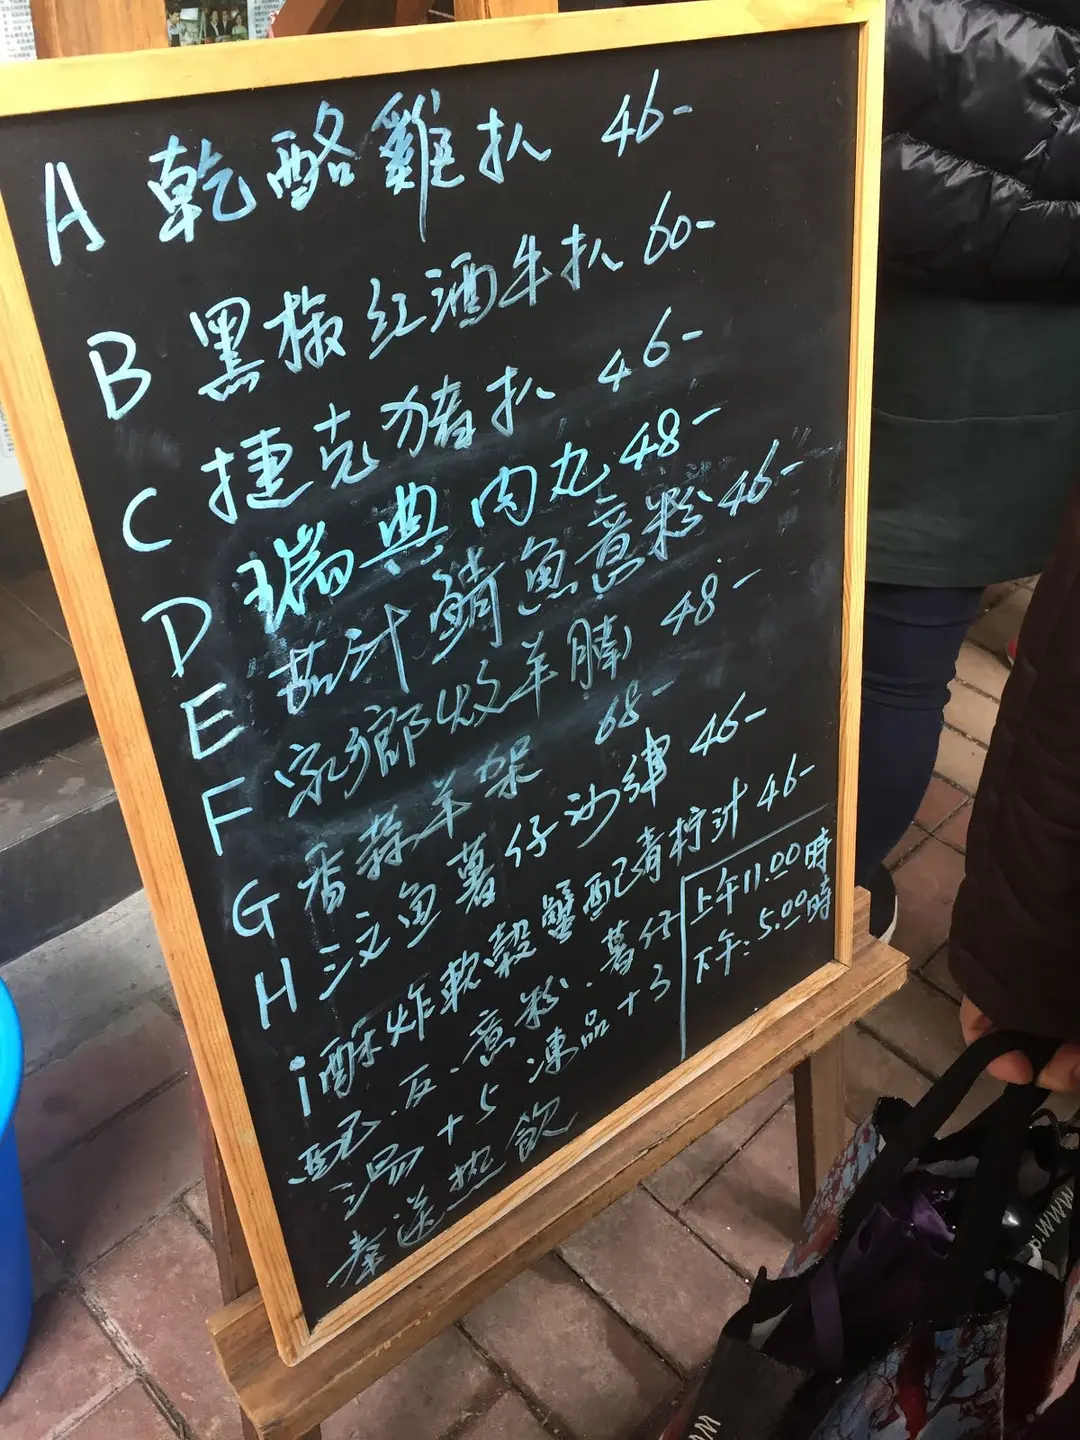 A 乾酪雞扒 46-
B 黑椒紅酒牛扒 60-
C 捷克豬扒 46-
D 瑞典肉丸 48-
E 茄汁鯖魚意粉 46-
F 家鄉炆羊腩 48-
G 香蒜羊架 68-
H 三文魚薯仔沙律 46-
i 酥炸軟殼蟹配青柠汁 46-
配.反.意粉.薯仔
湯+5 凍品+3
奉送热飲
上午11.00時
下午:5.00時